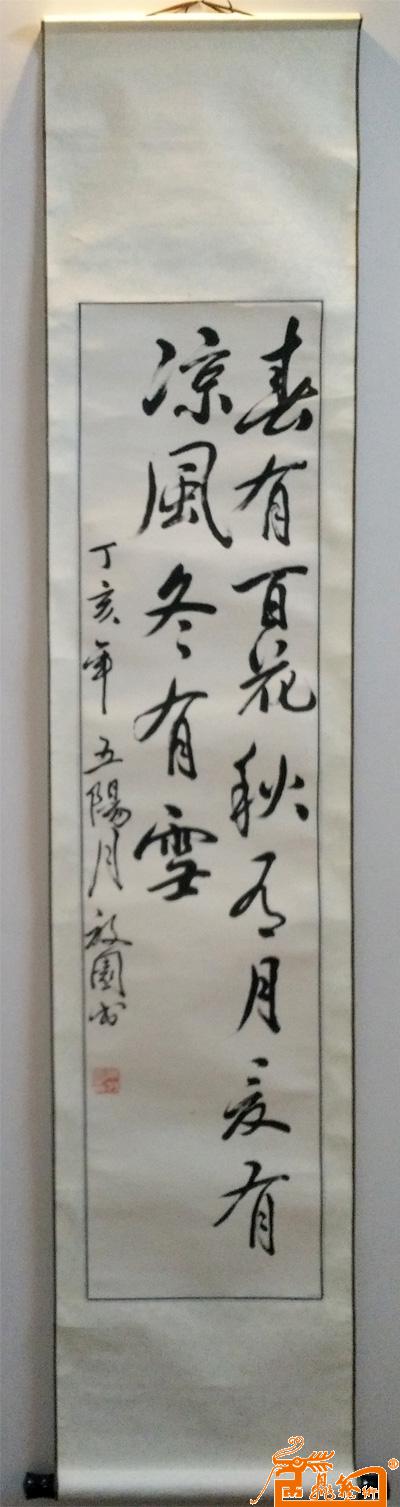 春有百花秋有月夏有
凉風冬有雪
丁亥年五陽月 園书